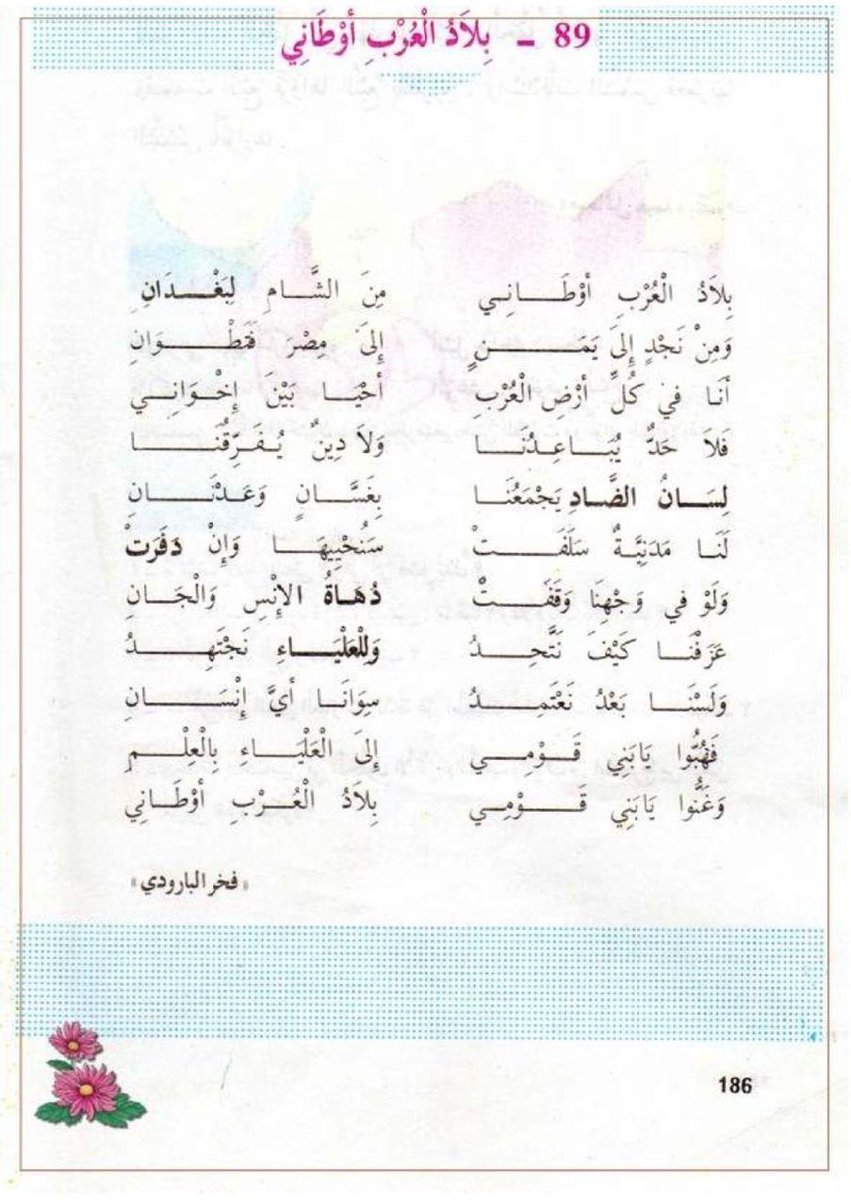 89 - بِلاَدُ الْعُرْبِ أوْطَانِي
بِلاَدُ الْعُرْبِ أوْطَـــانِـي مِنَ الشَّـامِ لِبَغْـدَانِ
وَمِنْ نَجْدٍ إِلَى يَمَــنٍ إِلَى مِصْرَ فَتِطْـوَانِ
أنَـا فِي كُلِّ أرْضِ الْعُرْبِ أحْيَـا بَيْنَ إِخْـوَانِـي
فَلاَ حَدٌّ يُبَـاعِـدُنَـا وَلاَ دِينٌ يُـفَـرِّقُنَـا
لِسَـانُ الضَّادِ يَجْمَعُنَـا بِغَسَّـانٍ وَعَدْنَـانِ
لَنَـا مَدَنِيَّـةٌ سَلَفَـتْ سَنُحْيِيهَـا وَإِنْ دَفَرَتْ
وَلَوْ فِي وَجْهِنَا وَقَفَـتْ دُهَـاةُ الإنْسِ وَالْجَـانِ
عَرَفْنَـا كَيْفَ نَتَّحِـدُ وَلِلْعَلْيَـاءِ نَجْتَهِـدُ
وَلَسْنَـا بَعْدُ نَعْتَمِـدُ سِوَانَـا أيَّ إِنْسَـانِ
فَهُبُّوا يَابَنِي قَـوْمِـي إِلَى الْعَلْيَـاءِ بِالْعِلْـمِ
وَغَنُّوا يَابَنِي قَـوْمِـي بِلاَدُ الْعُـرْبِ أوْطَـانِي
« فخر البارودي »
186